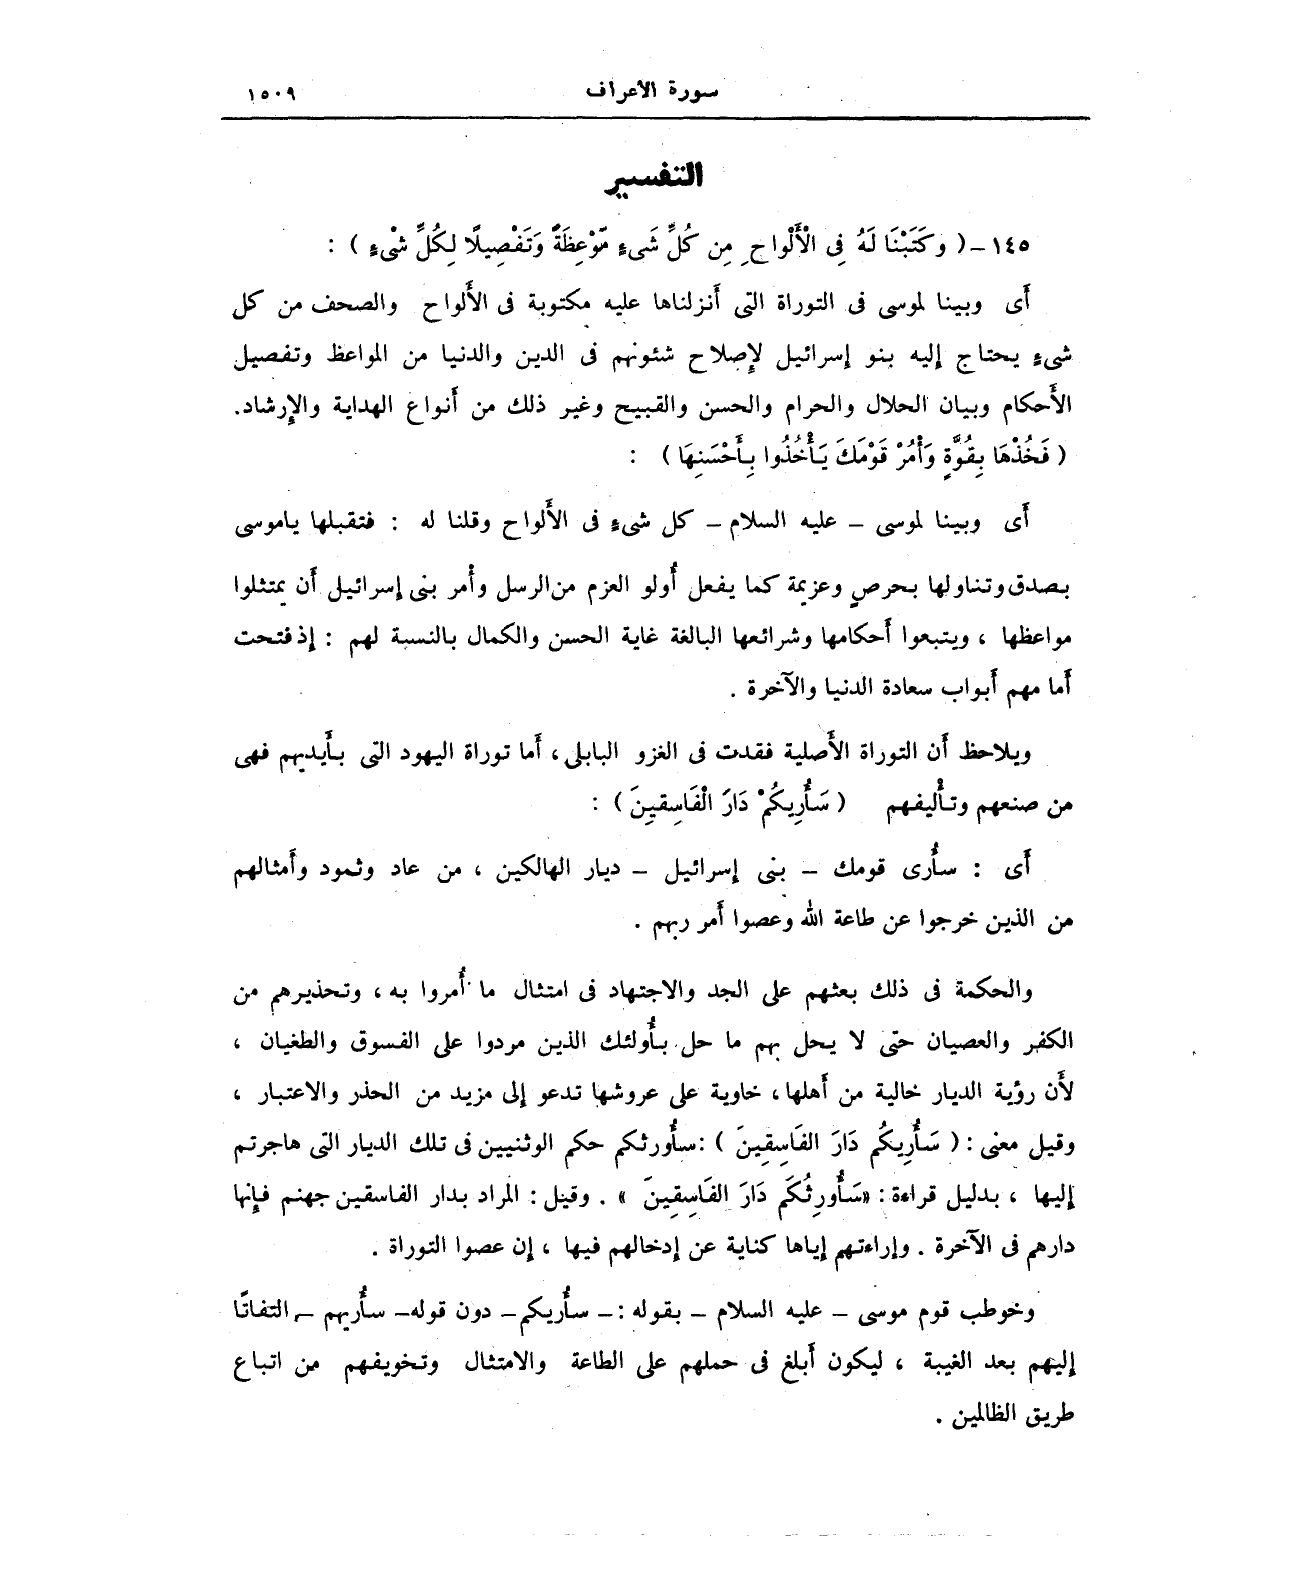 سورة الأعراف ١٥٠٩
التفسير
١٤٥ـ ( وكَتَبْنَا لَهُ فِى الْأَلْواحِ مِن كُلِّ شَىءٍ مَّوْعِظَةً وَتَفْصِيلًا لِكُلِّ شْىءٍ ) :
أَى وبينا لموسى فى التوراة التى أَنزلناها عليه مكتوبة فى الأَلواح والصحف من كل
شىءٍ يحتاج إليه بنو إسرائيل لإِصلاح شئونهم فى الدين والدنيا من المواعظ وتفصيل
الأَحكام وبيان الحلال والحرام والحسن والقبيح وغير ذلك من أَنواع الهداية والإِرشاد.
( فَخُذْهَا بِقُوَّةٍ وَأْمُرْ قَوْمَكَ يَأْخُذُوا بِأَحْسَنِهَا ) :
أَى وبينا لموسى ـ عليه السلام ـ كل شىءٍ فى الأَلواح وقلنا له : فتقبلها ياموسى
بصدق وتناولها بحرصٍ وعزيمة كما يفعل أُولو العزم من الرسل وأْمر بنى إسرائيل أَن يمتثلوا
مواعظها ، ويتبعوا أَحكامها وشرائعها البالغة غاية الحسن والكمال بالنسبة لهم : إذ فتحت
أَما مهم أَبواب سعادة الدنيا والآخرة .
ويلاحظ أَن التوراة الأَصلية فقدت فى الغزو البابلى، أَما توراة اليهود التى بأَيديهم فهى
من صنعهم وتأْليفهم ( سَأُرِيكُمْ دَارَ الْفَاسِقِينَ ) :
أَى : سأُرى قومك ـ بنى إسرائيل ـ ديار الهالكين ، من عاد وثمود وأَمثالهم
من الذين خرجوا عن طاعة الله وعصوا أَمر ربهم .
والحكمة فى ذلك بعثهم على الجد والاجتهاد فى امتثال ما أُمروا به ، وتحذيرهم من
الكفر والعصيان حتى لا يحل بهم ما حل بأُولئك الذين مردوا على الفسوق والطغيان ،
لأَن رؤية الديار خالية من أَهلها، خاوية على عروشها تدعو إلى مزيد من الحذر والاعتبار ،
وقيل معنى : ( سَأُرِيكُم دَارَ الفَاسِقِينَ ) :سأُورثكم حكم الوثنيين فى تلك الديار التى هاجرتم
إليها ، بدليل قراءة : «سَأُورِثُكَم دَارَ الفَاسِقِينَ » . وقيل : المراد بدار الفاسقين جهنم فإنها
دارهم فى الآخرة . وإراءتهم إياها كناية عن إدخالهم فيها ، إن عصوا التوراة .
وخوطب قوم موسى ـ عليه السلام ـ بقوله :ـ سأُريكم ـ دون قوله ـ سأُريهم ـ التفاتًا
إليهم بعد الغيبة ، ليكون أَبلغ فى حملهم على الطاعة والامتثال وتخويفهم من اتباع
طريق الظالمين .